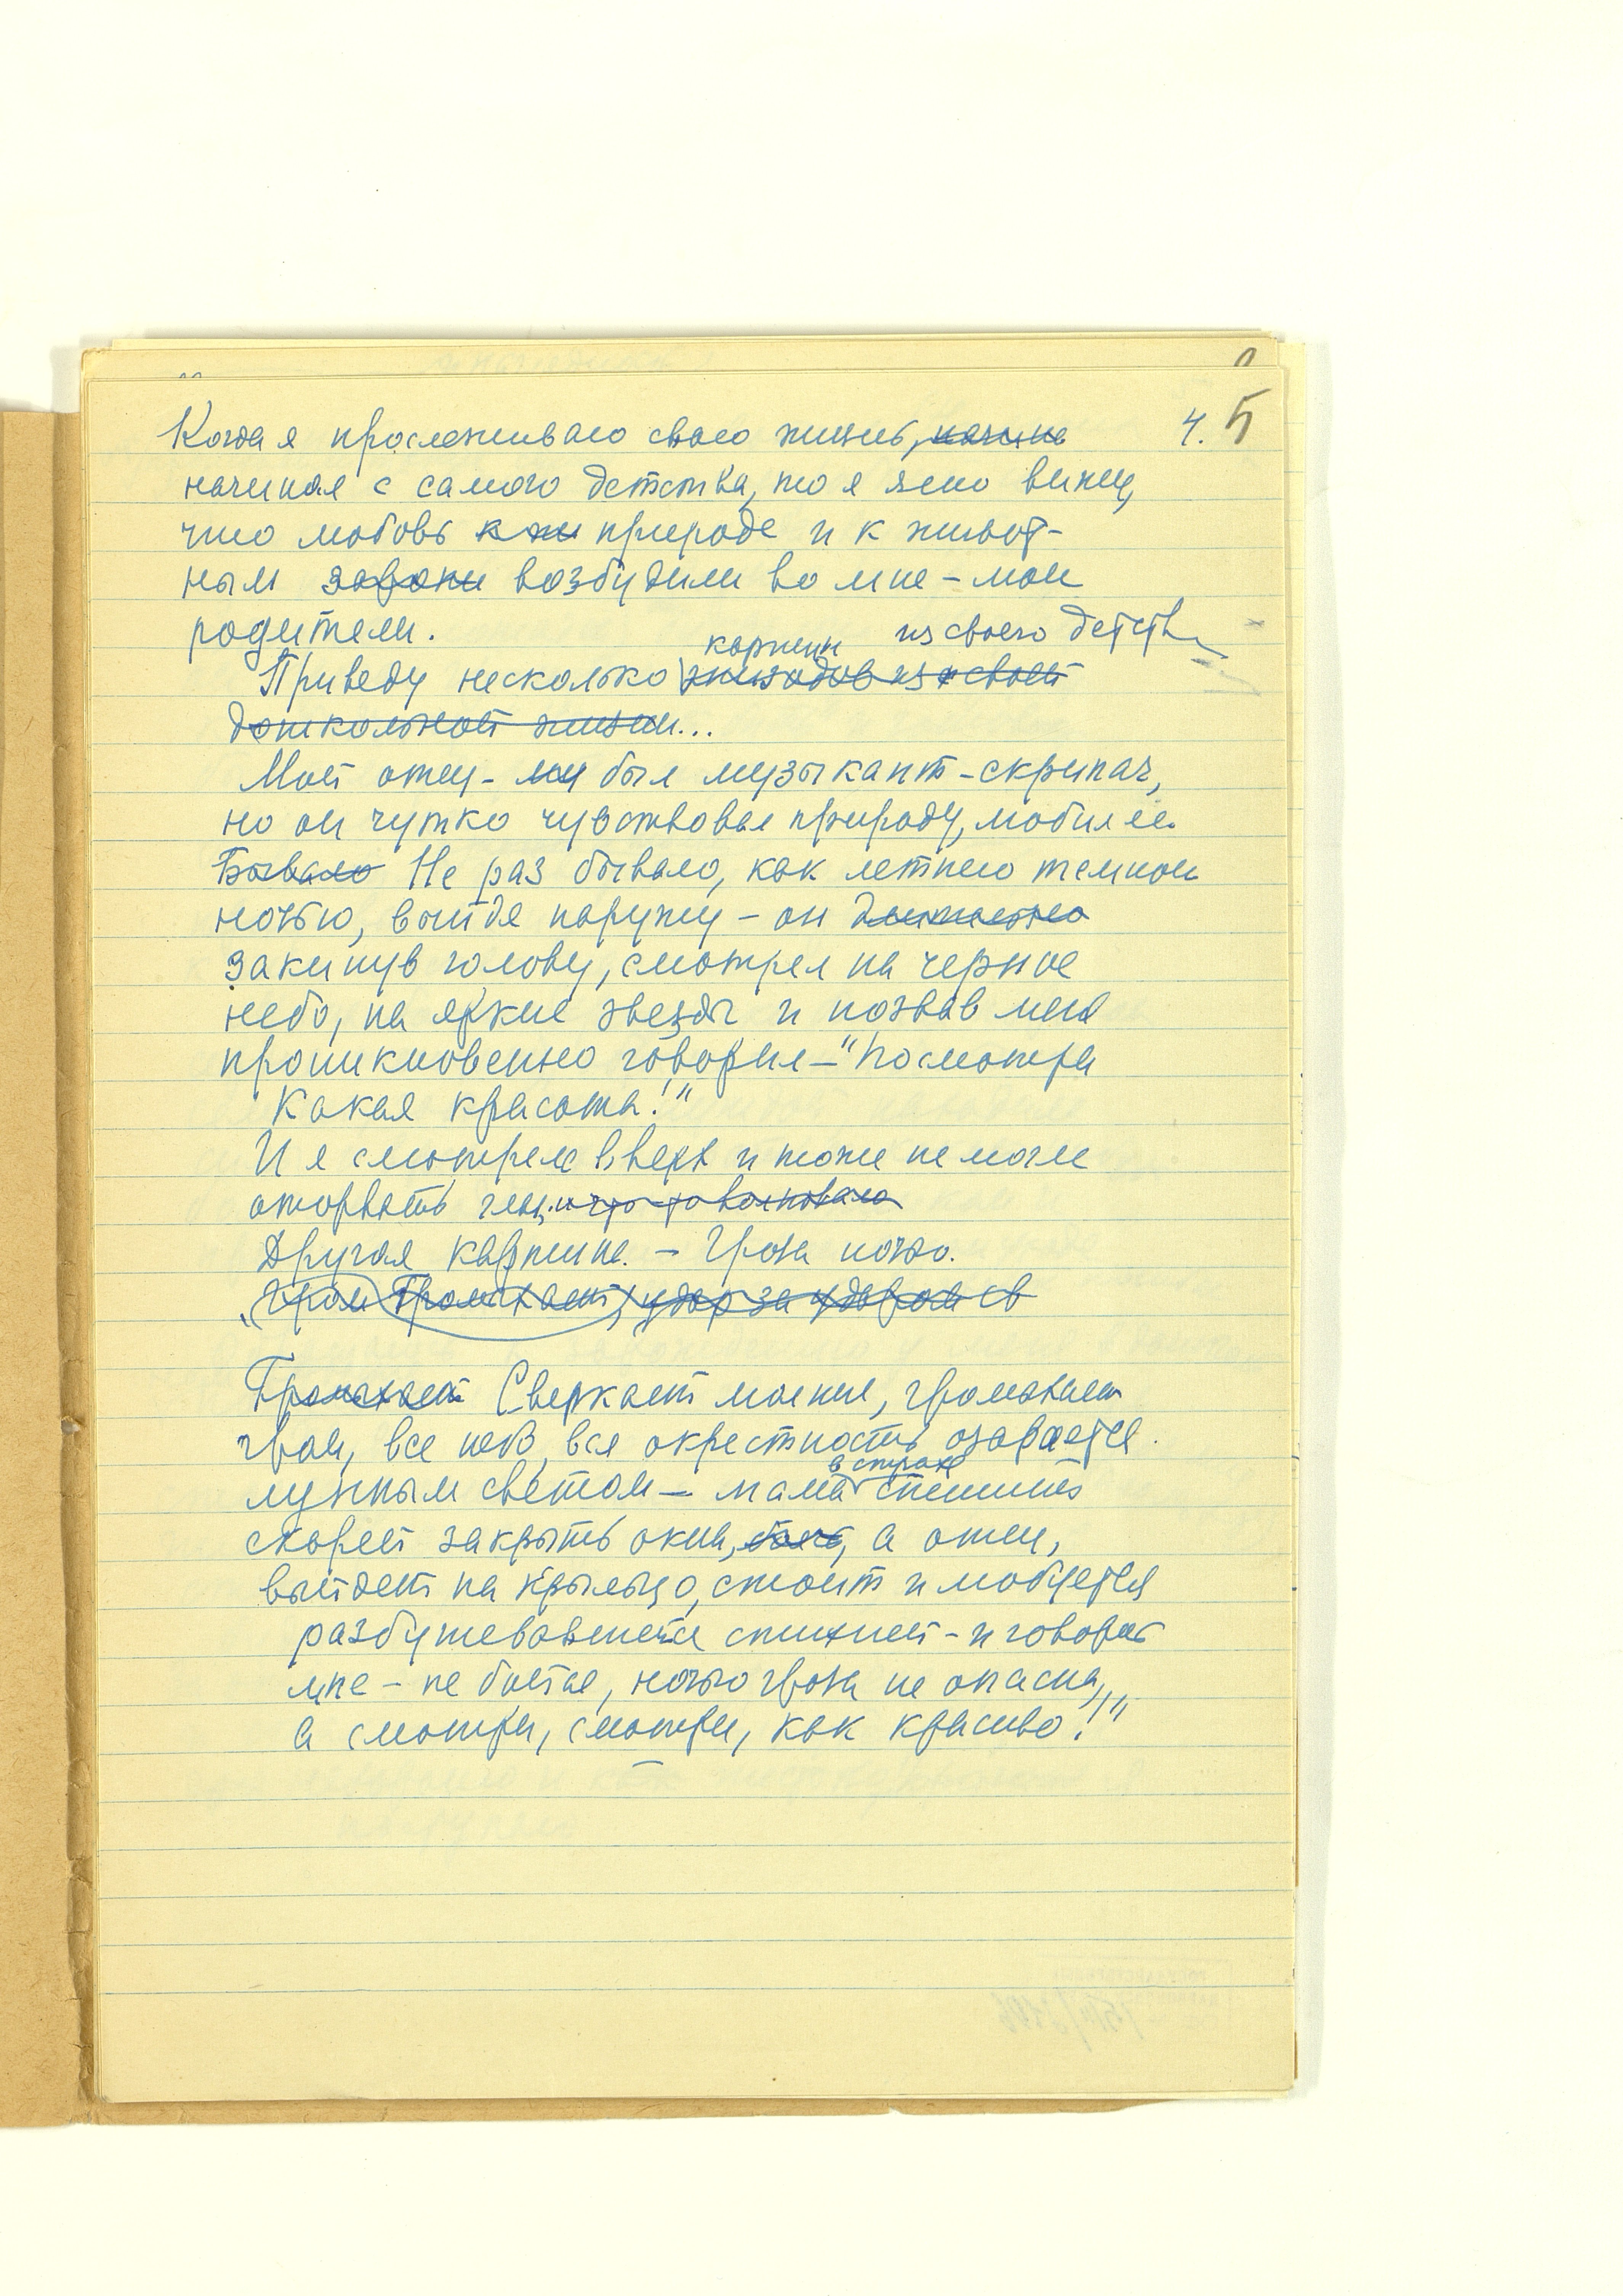 4. 5
Когда я прослеживаю свою жизнь, начина
начиная с самого детства, то я ясно вижу,
что любовь к жи природе и к живот-
ным зарони возбудили во мне – мои
родители.
картин из своего детства
Приведу несколько эпизодов из своей
дошкольной жизни...
Мой отец – му был музыкант-скрипач,
но он чутко чувствовал природу, любил её.
Бывало Не раз бывало, как летнею темной
ночью, выйдя наружу – он длительно
закинув голову, смотрел на черное
небо, на яркие звезды и позвав меня
проникновенно говорил – "Посмотри
какая красота!"
И я смотрела вверх и тоже не могла
оторвать глаз. и что-то волновало
Другая картина. – Гроза ночью.
„Гром Громыхает, удар за ударом св
Громыхает Сверкает молния, громыхает
гром, все небо, вся окрестность озаряется
лунным светом – мама спешит
в страхе
скорей закрыть окна, а отец,
выйдет на крыльцо, стоит и любуется
разбушевавшейся стихией – и говорит
мне – не бойся, ночью гроза не опасна,
а смотри, смотри, как красиво!"